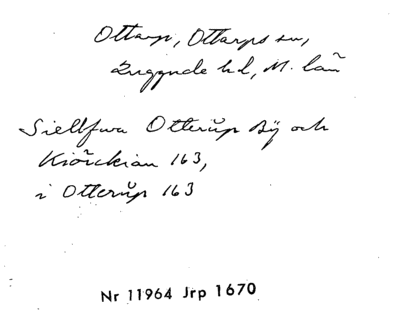 Ottarp, Ottarps sn,
Luggude hd, M. län
Siellfwa Otterŭp Bÿ och
Kiörckian 163,
i Otterŭp 163
Nr 11964 Jrp 1670